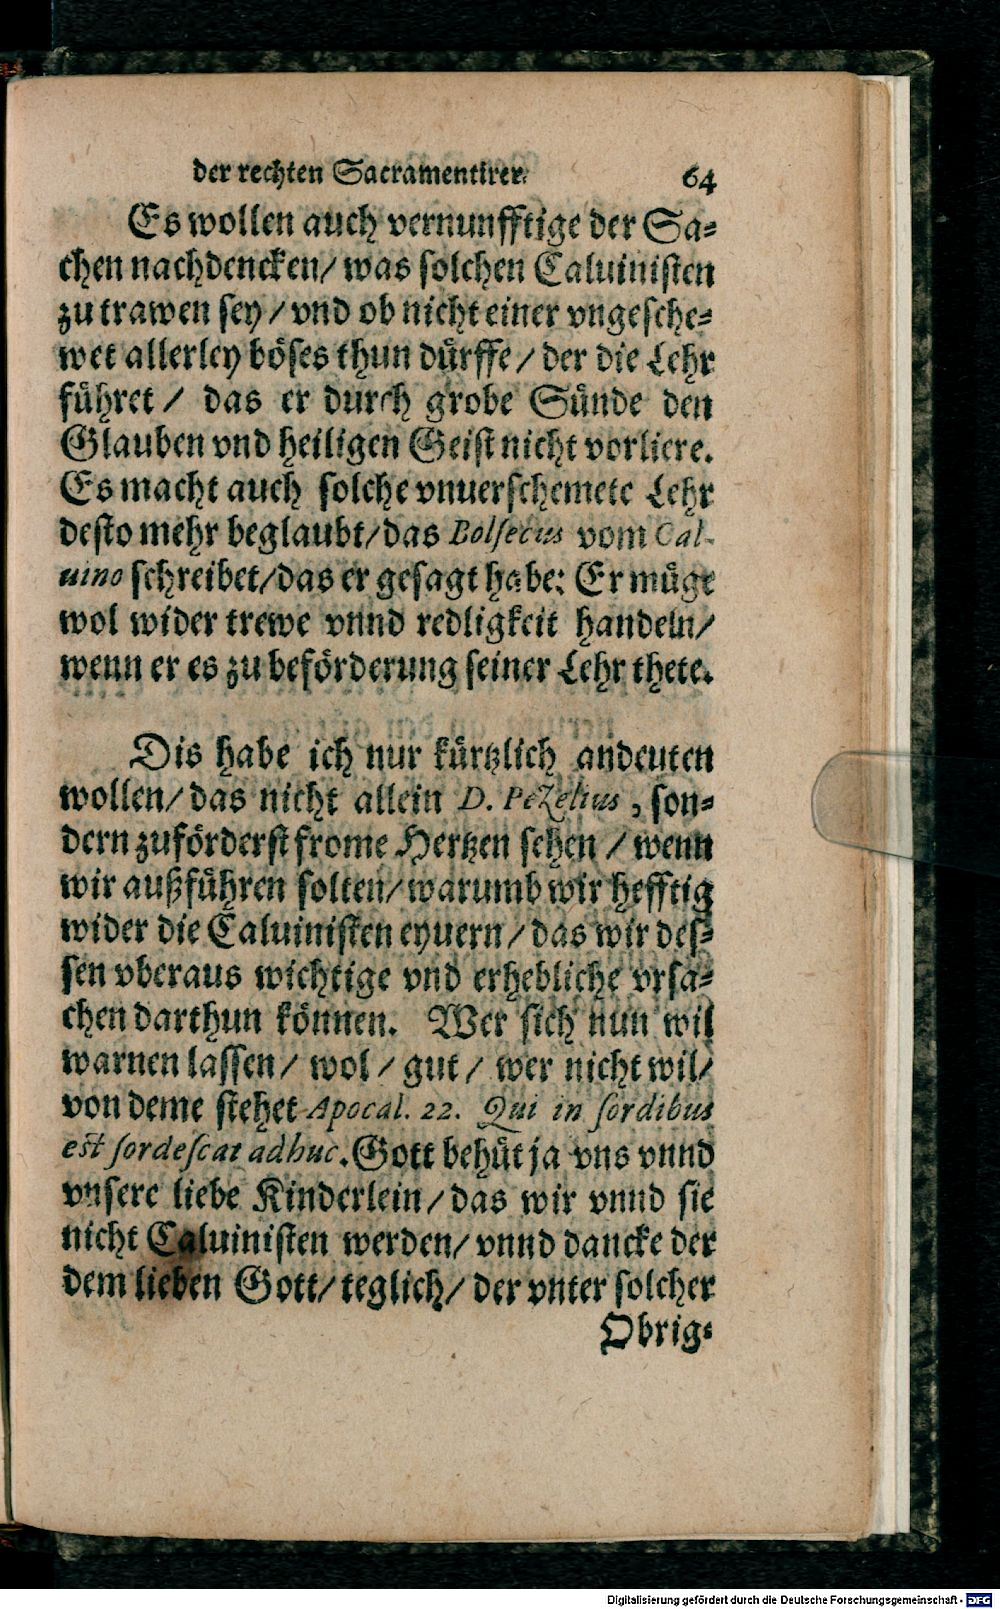 der rechten Sacramentirer. 64
Es wollen auch vernunfftige der Sa-
chen nachdencken/ was solchen Caluinisten
zu trawen sey / vnd ob nicht einer vngesche-
wet allerley böses thun dürffe / der die Lehr
führet / das er durch grobe Sünde den
Glauben vnd heiligen Geist nicht vorliere.
Es macht auch solche vnuerschemete Lehr
desto mehr beglaubt/das Bolsecus vom Cal-
uino schreibet/das er gesagt habe: Er müge
wol wider trewe vnnd redligkeit handeln/
wenn er es zu beförderung seiner Lehr thete.
Dis habe ich nur kürtzlich andeuten
wollen/ das nicht allein D. Pezelius, son-
dern zuförderst frome Hertzen sehen / wenn
wir außführen solten/ warumb wir hefftig
wider die Caluinisten eyuern / das wir des-
sen vberaus wichtige vnd erhebliche vrsa-
chen darthun können. Wer sich nun wil
warnen lassen / wol / gut / wer nicht wil/
von deme stehet Apocal. 22. Qui in sordibus
est sordescat adhuc. Gott behüt ja vns vnnd
vnsere liebe Kinderlein / das wir vnnd sie
nicht Caluinisten werden/ vnnd dancke der
dem lieben Gott/ teglich/ der vnter solcher
Obrig-
Digitalisierung gefördert durch die Deutsche Forschungsgemeinschaft - DFG